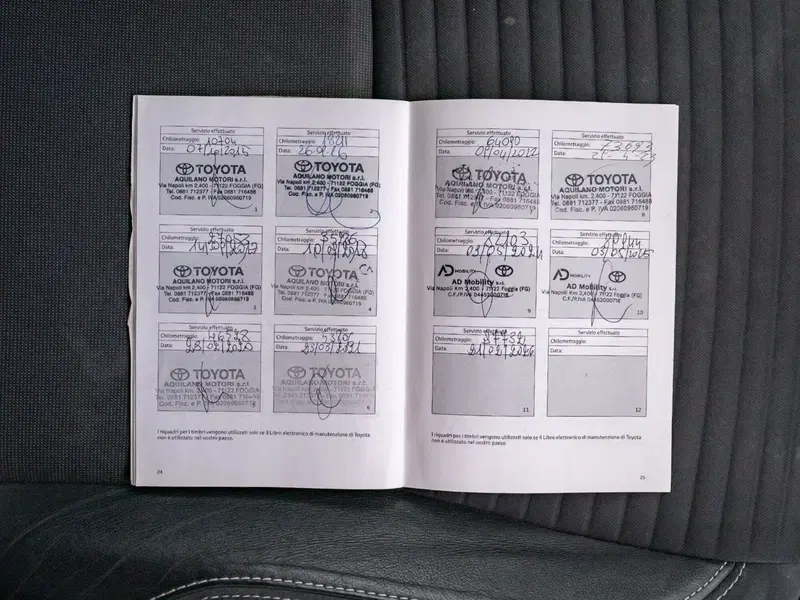 Servizio effettuato
Chilometraggio: 10704
Data: 07/10/2015
TOYOTA
AQUILANO MOTORI s.r.l.
Via Napoli km 2,400 - 71122 FOGGIA (FG)
Tel. 0881 712377 - Fax 0881 716488
Cod. Fisc. e P. IVA 02060960719
1
Servizio effettuato
Chilometraggio:
Data:
TOYOTA
AQUILANO MOTORI s.r.l.
Via Napoli km 2,400 - 71122 FOGGIA (FG)
Tel. 0881 712377 - Fax 0881 716488
Cod. Fisc. e P. IVA 02060960719
2
Servizio effettuato
Chilometraggio:
Data:
TOYOTA
AQUILANO MOTORI s.r.l.
Via Napoli km 2,400 - 71122 FOGGIA (FG)
Tel. 0881 712377 - Fax 0881 716488
Cod. Fisc. e P. IVA 02060960719
3
Servizio effettuato
Chilometraggio:
Data:
TOYOTA
AQUILANO MOTORI s.r.l.
Via Napoli km 2,400 - 71122 FOGGIA (FG)
Tel. 0881 712377 - Fax 0881 716488
Cod. Fisc. e P. IVA 02060960719
4
Servizio effettuato
Chilometraggio:
Data: 28/02/2020
TOYOTA
AQUILANO MOTORI s.r.l.
Via Napoli km 2,400 - 71122 FOGGIA
Tel. 0881 712377 - Fax 0881
Cod. Fisc. e P. IVA
Servizio effettuato
Chilometraggio:
Data: 23/03/2021
TOYOTA
AQUILANO MOTORI s.r.l.
Via Napoli km 2,400 - 71122 FOGGIA (FG)
Tel. 0881 712377 - Fax 0881
Cod. Fisc. e P. IVA
6
I riquadri per i timbri vengono utilizzati solo se il Libro elettronico di manutenzione di Toyota
non è utilizzato nel vostro paese.
24
Servizio effettuato
Chilometraggio: 64090
Data: 01/04/2022
TOYOTA
AQUILANO MOTORI s.r.l.
Via Napoli km 2,400 - 71122 FOGGIA (FG)
Tel. 0881 712377 - Fax 0881
Cod. Fisc. e P. IVA 02060960719
Servizio effettuato
Chilometraggio: 73693
Data:
TOYOTA
AQUILANO MOTORI s.r.l.
Via Napoli km 2,400 - 71122 FOGGIA (FG)
Tel. 0881 712377 - Fax 0881
Cod. Fisc. e P. IVA 02060960719
8
Servizio effettuato
Chilometraggio:
Data:
AD MOBILITY
AD Mobility s.r.l.
Via Napoli Km 2,400 - 71122 Foggia (FG)
C.F./P.IVA 04452000716
9
Servizio effettuato
Chilometraggio:
Data: 03/03/2025
AD MOBILITY
AD Mobility s.r.l.
Via Napoli Km 2,400 - 71122 Foggia (FG)
C.F./P.IVA 04452000716
10
Servizio effettuato
Chilometraggio: 97732
Data: 21/02/2026
11
Servizio effettuato
Chilometraggio:
Data:
12
I riquadri per i timbri vengono utilizzati solo se il Libro elettronico di manutenzione di Toyota
non è utilizzato nel vostro paese.
25